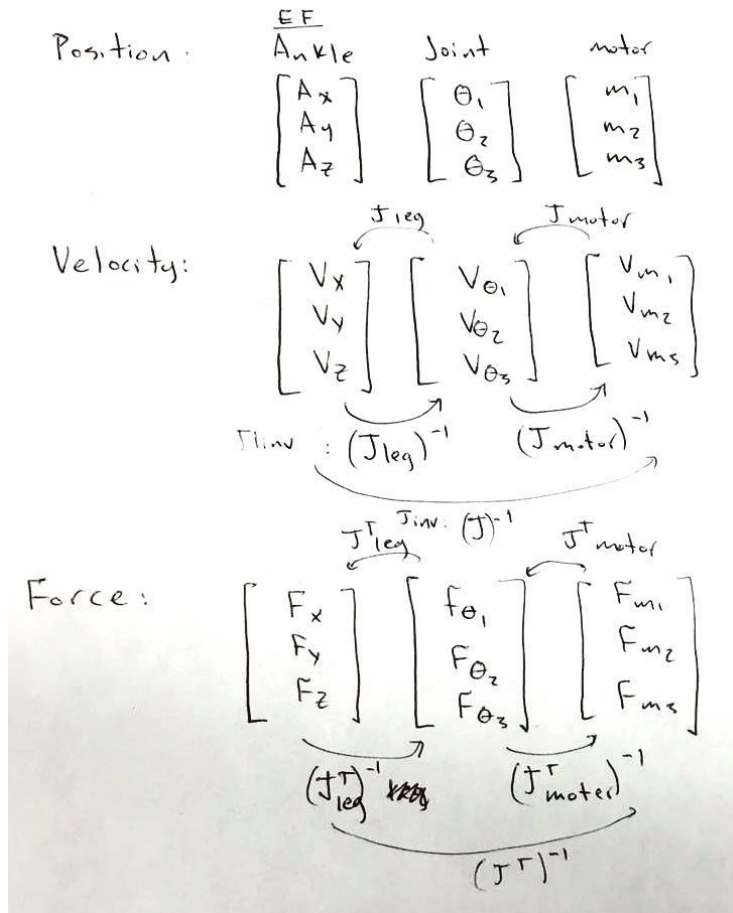 EF
Position: Ankle Joint motor
[Ax Ay Az] [θ1 θ2 θ3] [m1 m2 m3]
Jleg Jmotor
Velocity: [Vx Vy Vz] [Vθ1 Vθ2 Vθ3] [Vm1 Vm2 Vm3]
Jlinv : (Jleg)^-1 (Jmotor)^-1
Jinv: (J)^-1
J^T leg J^T motor
Force: [Fx Fy Fz] [fθ1 Fθ2 Fθ3] [Fm1 Fm2 Fm3]
(J^T leg)^-1 (J^T moter)^-1
(J^T)^-1